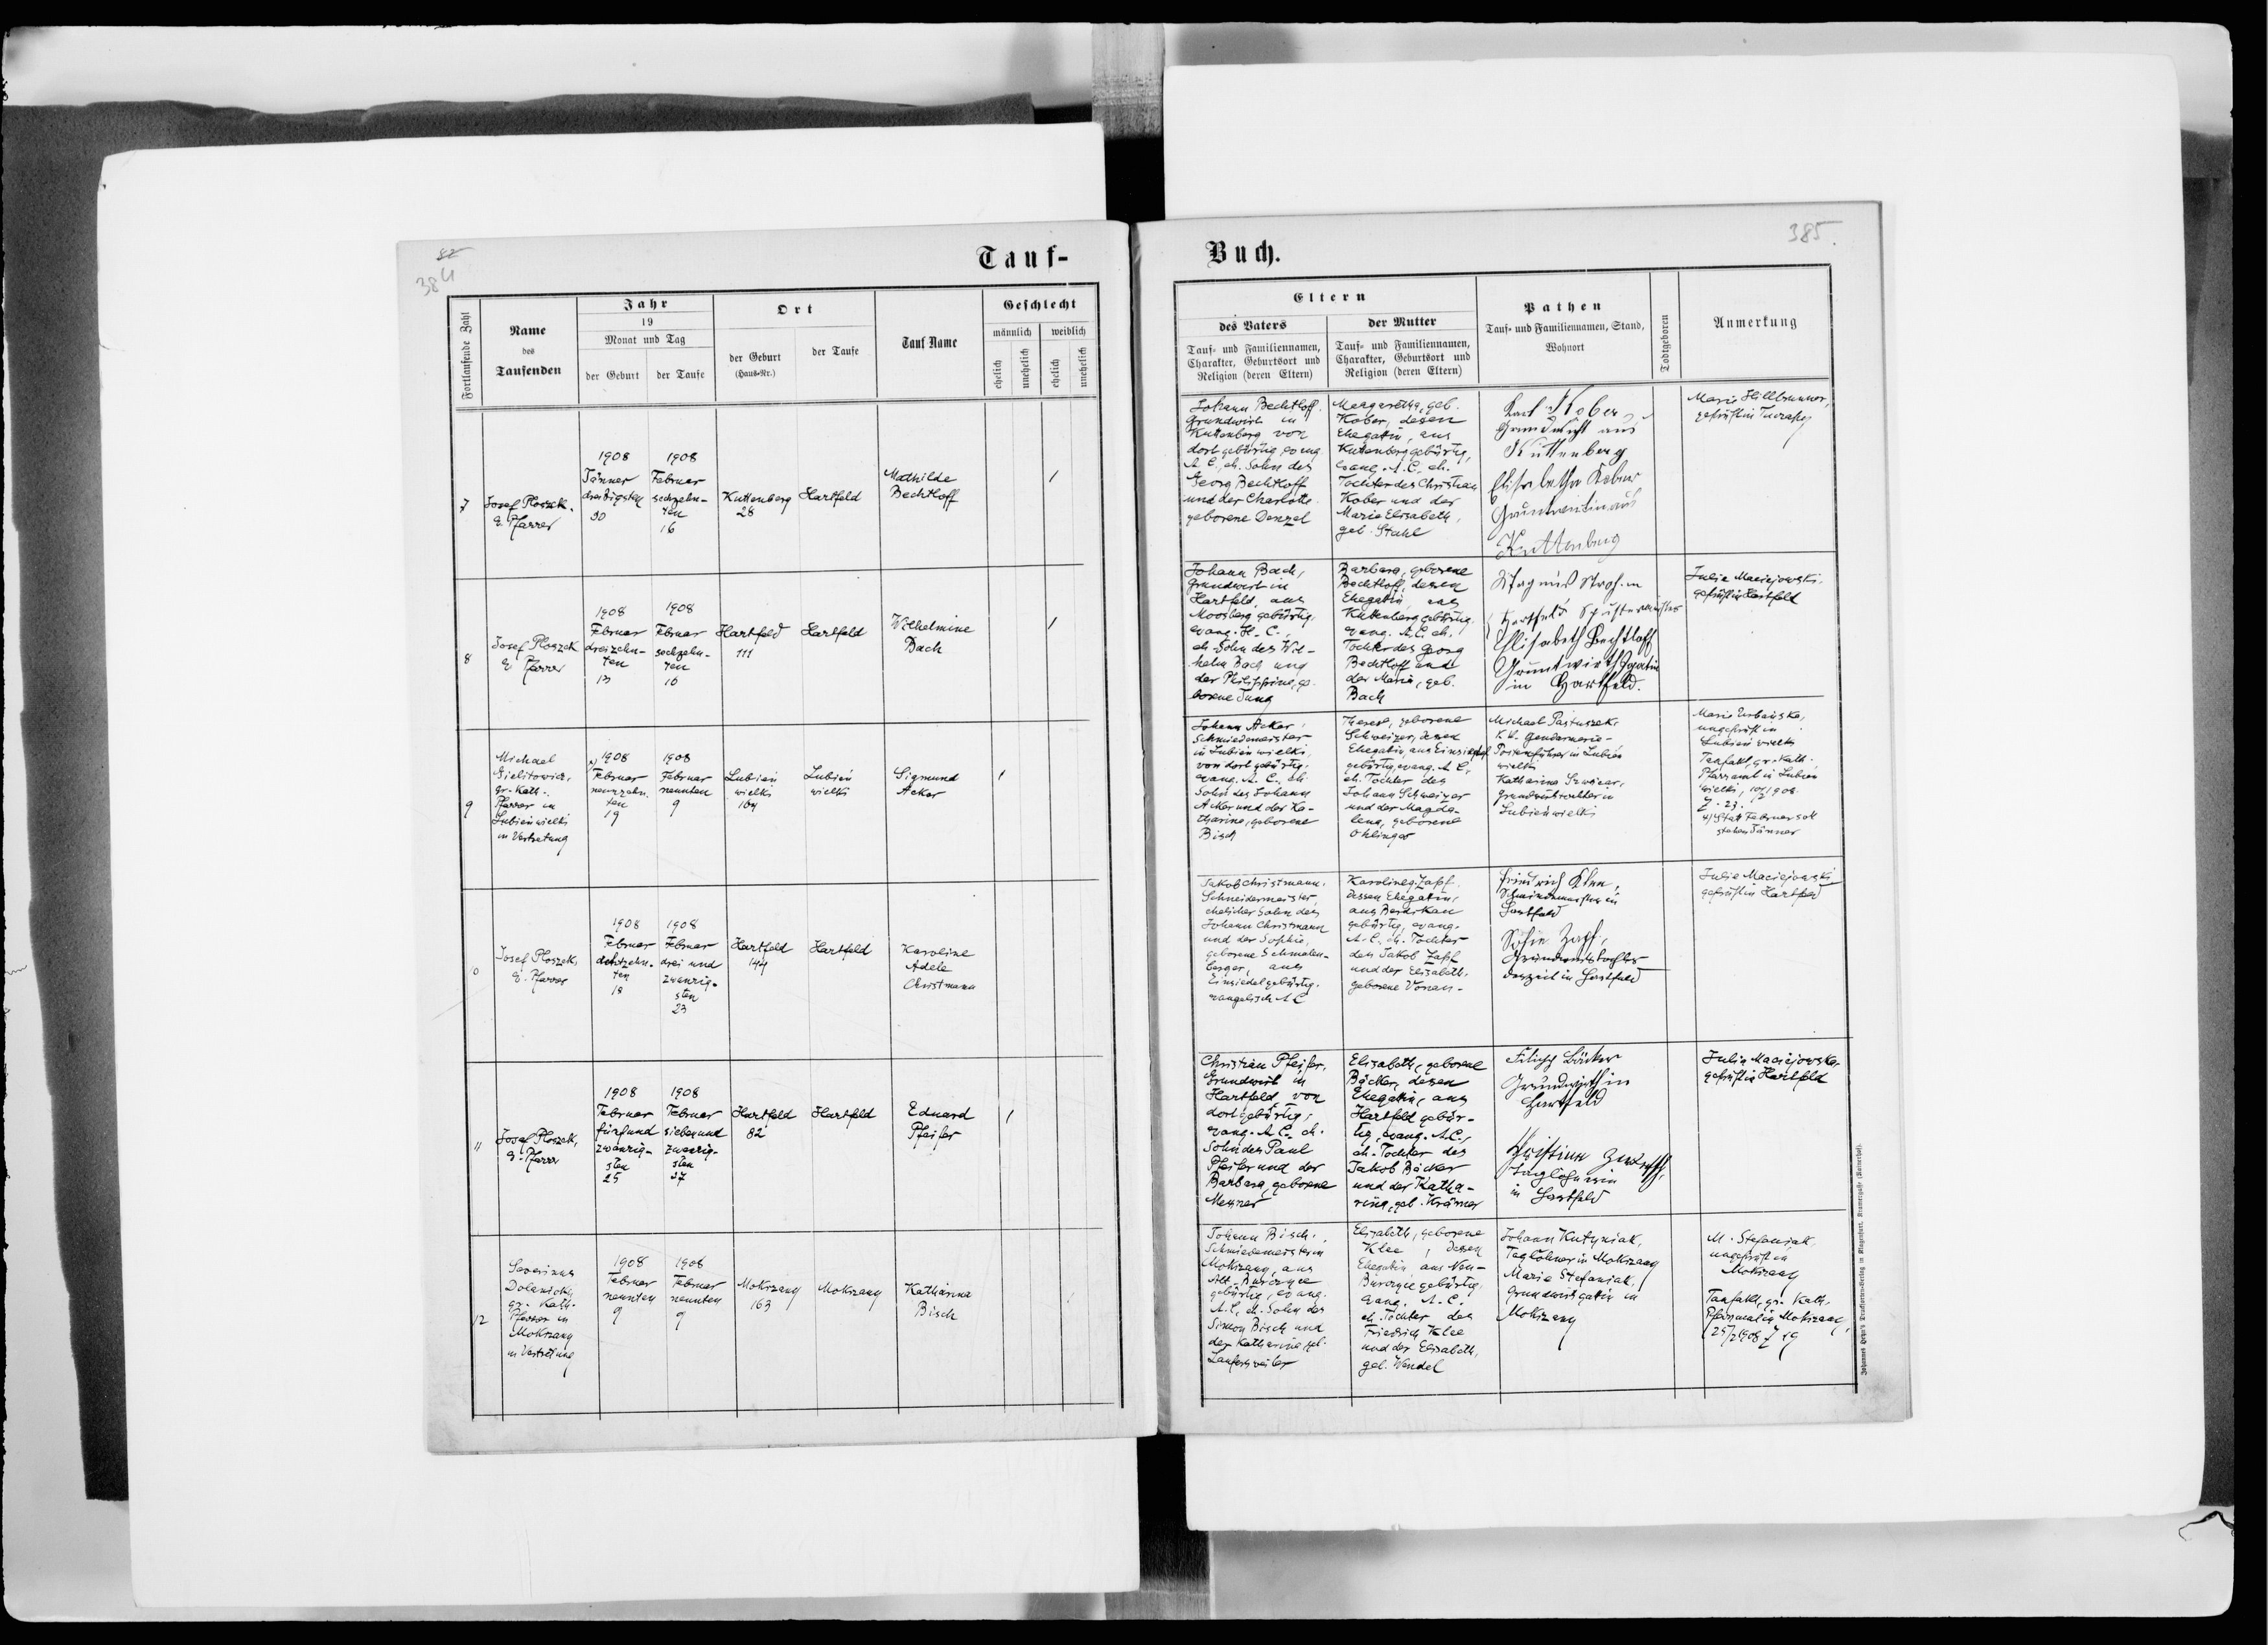 82
384
Tauf-
Fortlaufende Zahl
Name
des
Taufenden
Jahr
19
Monat und Tag
der Geburt
der Taufe
Ort
der Geburt
(Haus-Nr.)
der Taufe
Tauf Name
Geschlecht
männlich
weiblich
ehelich
unehelich
ehelich
unehelich
7
Josef Ploszek.
E. Pfarrer
1908
Jänner
dreißigsten
30
1908
Februar
sechzehn-
ten
16
Kuttenberg
28
Hartfeld
Mathilde
Bechtloff
1
8
Josef Ploszek
E Pfarrer
1908
Februar
dreizehn-
ten
13
1908
Februar
sechzehn-
ten
16
Hartfeld
111
Hartfeld
Wilhelmine
Bach
1
9
Michael
gr.-Kath.
Pfarrer in
Lubień wielki
in Vertretung
1908
Februar
neunzehn-
ten
19
1908
Februar
neunten
9
Lubień
wielki
164
Lubień
wielki
Sigmund
Acker
1
0
Josef Ploszek,
E. Pfarrer
1908
Februar
achtzehn-
ten
18
1908
Februar
drei und
zwanzig-
sten
23
Hartfeld
144
Hartfeld
Karoline
Adele
Christmann
11
Josef Ploszek,
E. Pfarrer
1908
Februar
fünfund
zwanzig-
sten
25
1908
Februar
siebenund
zwanzig-
sten
27
Hartfeld
82
Hartfeld
Eduard
Pfeifer
1
12
Severinus
gr. Kath.
Pfarrer in
Mokrzany
in Vertretung
1908
Februar
neunten
9
1908
Februar
neunten
9
Mokrzany
163
Mokrzany
Katharina
Bisch
385.
Buch.
Eltern
des Vaters
Tauf- und Familiennamen,
Charakter, Geburtsort und
Religion (deren Eltern)
der Mutter
Tauf- und Familiennamen,
Charakter, Geburtsort und
Religion (deren Eltern)
Pathen
Tauf- und Familiennamen, Stand,
Wohnort
Todtgeboren
Anmerkung
Johann Bechtloff.
Grundwirt in
Kuttenberg von
dort gebürtig, evang.
A. C., eh. Sohn des
Georg Bechtloff
und der Charlotte
geborene Denzel
Margaretha, geb.
Kober, dessen
Ehegatin, aus
Kuttenberg gebürtig,
evang. A. C., eh.
Tochter des Christian
Kober und der
Maria Elisabeth,
geb. Stahl
Karl Kober,
Grundwirt aus
Kuttenberg
Elisabetha Kober
Kuttenberg
Marie Hillbrunner,
geprüft in
Johann Bach,
Grundwirt in
Hartfeld, aus
Moosberg gebürtig,
evang. H. C.,
eh. Sohn des Wil-
helm Bach und
der Philippine, ge-
borene Jung
Barbara, geborene
Bechtloff, dessen
Ehegatin, aus
Kuttenberg gebürtig.
evang. A. C. eh.
Tochter des Georg
Bechtloff und
der Maria, geb.
Bach
Elisabeth Bechtloff
in Hartfeld.
Julie Maciejowski,
geprüft in Hartfeld
Johann Acker,
Schmiedemeister
in Lubień wielki
von dort gebürtig.
evang. A. C., eh.
Sohn des Johann
Acker und der Ka-
tharina, geborene
Bisch
Therese, geborene
Schweizer, dessen
Ehegatin, aus Einsiedel
gebürtig, evang. A. C.,
eh. Tochter des
Johann Schweizer
und der Magda-
lena, geborene
Ohlinger
Michael Pastuszek,
k. k. Gendarmerie-
Postenführer in Lubień
wielki
Katharina Szwajcer,
Grundwirtstochter in
Lubień wielki
Marie Urbańska,
ungeprüft in
Lubień wielki
Taufakt, gr.-Kath.
Pfarramt in Lubień
wielki, 10/2 1908
Z. 23.
x) Statt Februar soll
stehen Jänner
Jakob Christmann,
Schneidermeister,
ehelicher Sohn des
Johann Christmann
und der Sophie,
geborene Schmalen-
berger, aus
Einsiedel gebürtig.
evangelisch A C
Karoline g. Zapf
dessen Ehegatin,
gebürtig, evang.
A. C., eh. Tochter
des Jakob Zapf
und der Elisabeth,
geborene
Friedrich Klee,
Schmiedemeister in
Hartfeld
Sofie Zapf,
Grundwirtstochter
derzeit in Hartfeld
Julie Maciejowski
geprüft in Hartfeld
Christian Pfeifer,
Grundwirt in
Hartfeld, von
dort gebürtig,
evang. A. C., eh.
Sohn des Paul
Pfeifer und der
Barbara, geborene
Elisabeth, geborene
Bäcker, dessen
Ehegatin, aus
Hartfeld gebür-
tig, evang. A. C.,
eh. Tochter des
Jakob Bäcker
und der Katha-
rina, geb. Krämer
Filipp Bäcker
Grundwirth in
Hartfeld
Christina
Taglöhnerin
in Hartfeld
Julie Maciejowska,
geprüft in Hartfeld
Johann Bisch,
Schmiedemeister in
Mokrzany, aus
gebürtig, evang.
A. C., eh. Sohn des
Simon Bisch und
der Katharina geb.
Laufersweiler
Elisabeth, geborene
Klee, dessen
Ehegatin aus Neu-
gebürtig.
evang. A. C.
eh. Tochter des
Friedrich Klee
und der Elisabeth,
geb. Wendel
Johann Kutyniak,
Taglöhner in Mokrzany
Maria Stefaniak,
Grundwirtsgatin in
Mokrzany
M. Stefaniak,
ungeprüft in
Mokrzany
Taufakt, gr. Kath.
Mokrzany,
25/2 1908 Z 19